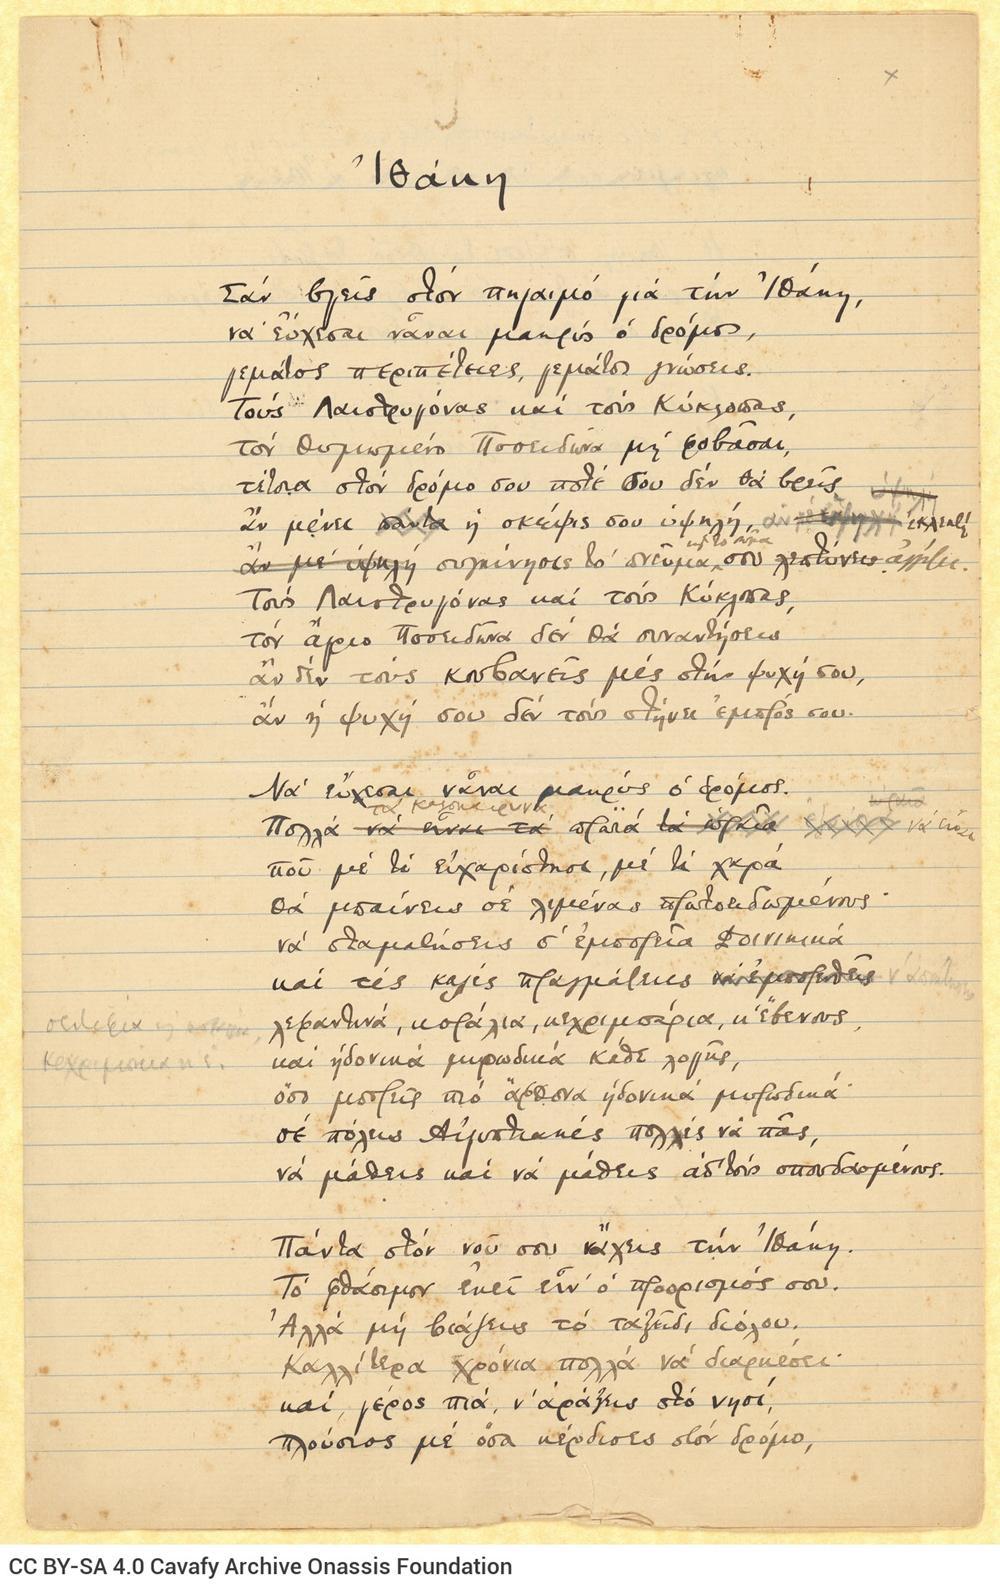 Ἰθάκη
Σάν βγεῖς στόν πηγαιμό γιά τήν Ἰθάκη,
νά εὔχεσαι νἆναι μακρύς ὁ δρόμος,
γεμάτος περιπέτειες, γεμάτος γνώσεις.
Τούς Λαιστρυγόνας καί τούς Κύκλωπας,
τόν θυμωμένο Ποσειδῶνα μή φοβᾶσαι,
τέτοια στόν δρόμο σου ποτέ σου δέν θά βρεῖς
ἄν μένει πάντα ἡ σκέψις σου ὑψηλή, ἐκλεκτή
ἄν μέ ὑψηλή συγκίνησις τό πνεῦμα καί τό σῶμα σου λεπτύνεις ἀγγίζει.
Τούς Λαιστρυγόνας καί τούς Κύκλωπας,
τόν ἄγριο Ποσειδῶνα δέν θά συναντήσεις
ἄν δέν τούς κουβανεῖς μές στήν ψυχή σου,
ἄν ἡ ψυχή σου δέν τούς στήνει ἐμπρός σου.
Νά εὔχεσαι νἆναι μακρύς ὁ δρόμος.
τά καλοκαιρινά
Πολλά νά εἶναι τά πρωϊά νά εἶναι
ποῦ μέ τί εὐχαρίστησι, μέ τί χαρά
θά μπαίνεις σέ λιμένας πρωτοειδωμένους·
νά σταματήσεις σ' ἐμπορεῖα Φοινικικά
καί τές καλές πραγμάτειες νά ἐμπορευθεῖς ν' ἀποκτήσεις
σεντέφια
λεφαντινά, κοράλια, κεχριμπάρια, κ' ἔβενους,
καί ἡδονικά μυρωδικά κάθε λογῆς,
ὅσο μπορεῖς πιό ἄφθονα ἡδονικά μυρωδικά·
σέ πόλεις Αἰγυπτιακές πολλές νά πᾶς,
νά μάθεις καί νά μάθεις ἀπ' τούς σπουδασμένους.
Πάντα στόν νοῦ σου νἄχεις τήν Ἰθάκη.
Τό φθάσιμον ἐκεῖ εἶν' ὁ προορισμός σου.
Ἀλλά μή βιάζεις τό ταξεῖδι διόλου.
Καλλίτερα χρόνια πολλά νά διαρκέσει·
καί, γέρος πιά, ν' ἀράξεις στό νησί,
πλούσιος μέ ὅσα κέρδισες στόν δρόμο,
CC BY-SA 4.0 Cavafy Archive Onassis Foundation